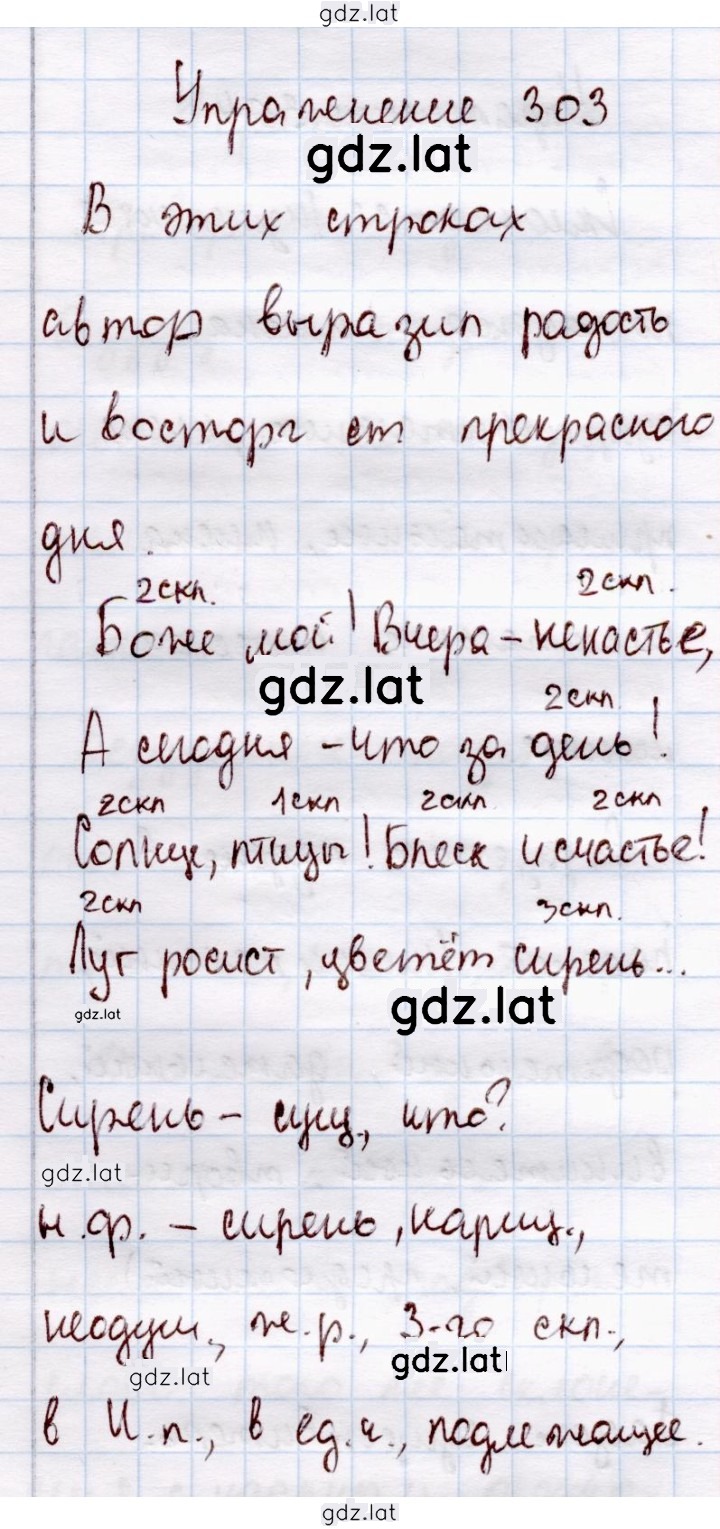 gdz.lat
Упражнение 303
gdz.lat
В этих строках
автор выразил радость
и восторг от прекрасного
дня.
2скл. 2скл.
Боже мой! Вчера - ненастье,
gdz.lat
2скл
А сегодня - что за день!
2скл 1скл 2скл 2скл
Солнце, птицы! Блеск и счастье!
2скл 3скл.
Луг росист, цветёт сирень...
gdz.lat gdz.lat
Сирень - сущ., что?
gdz.lat
н.ф. - сирень, нариц.,
неодуш., ж.р., 3-го скл.,
gdz.lat gdz.lat
в И.п., в ед.ч., подлежащее.
gdz.lat